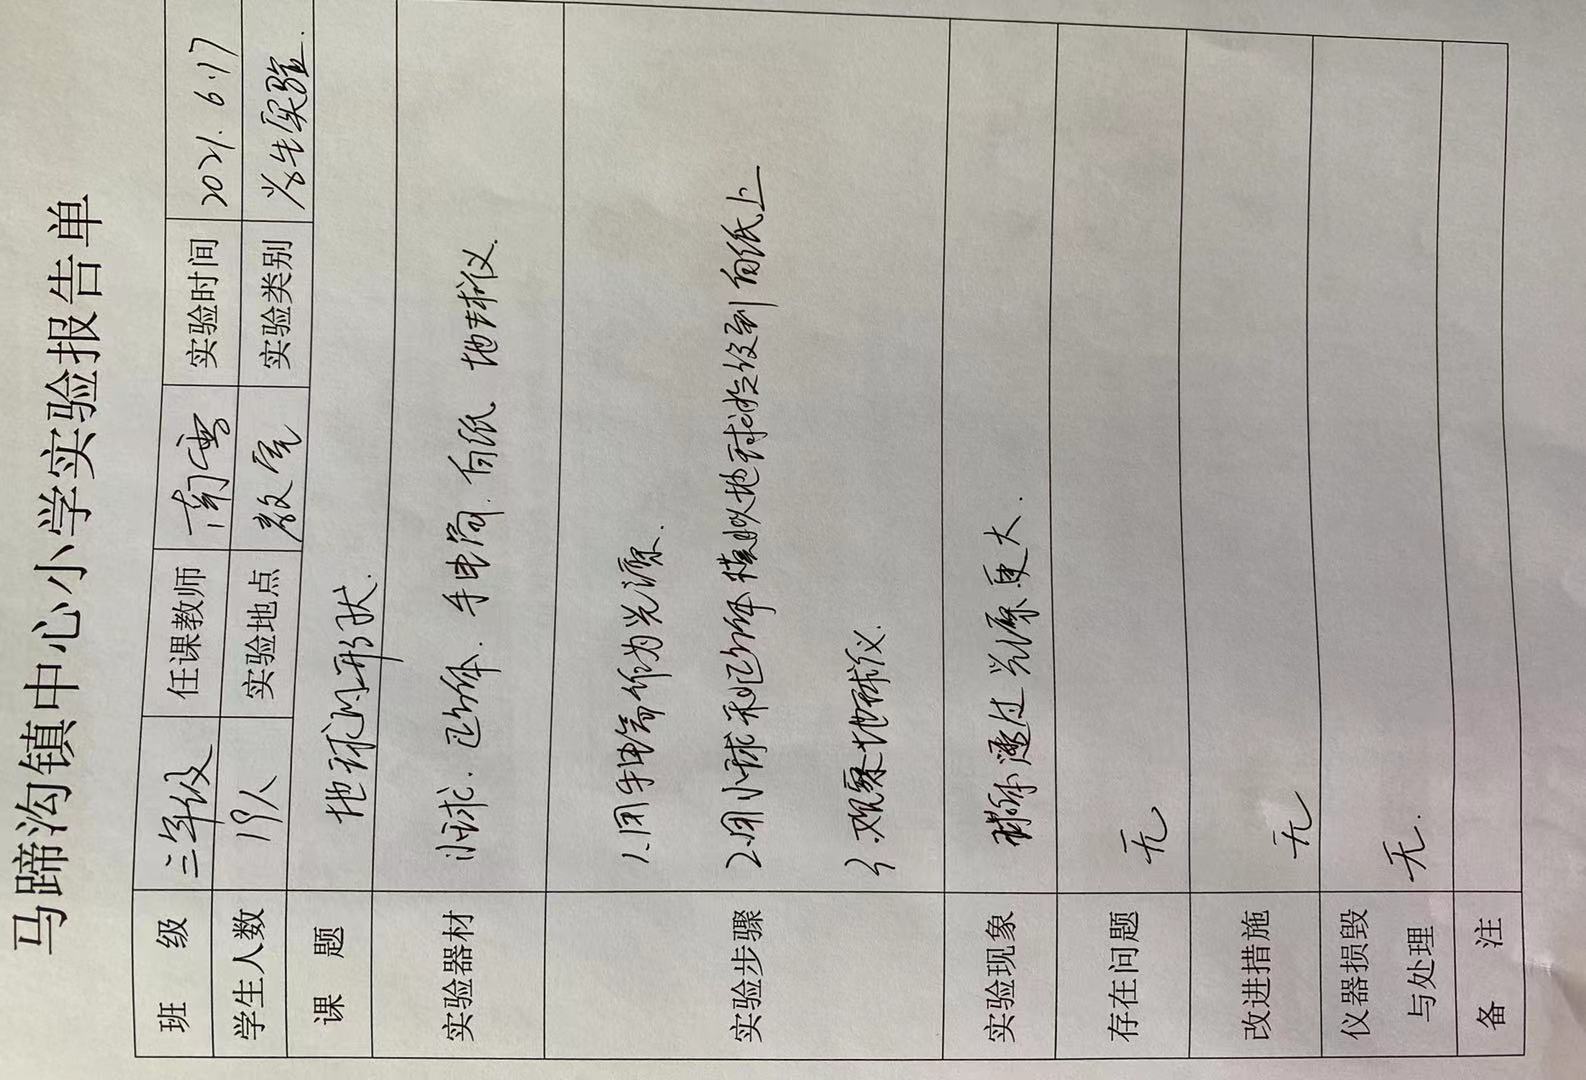 马蹄沟镇中心小学实验报告单
班级 三年级 任课教师 南雪 实验时间 2021.6.17
学生人数 19人 实验地点 教室 实验类别 学生实验.
课题 地球的形状.
实验器材 小球. 正方体. 手电筒. 白纸、地球仪.
实验步骤 1.用手电筒作为光源.
2.用小球和正方体模拟地球投影到白纸上
3.观察地球仪.
实验现象 球体透过光源更大.
存在问题 无
改进措施 无
仪器损毁与处理 无.
备注